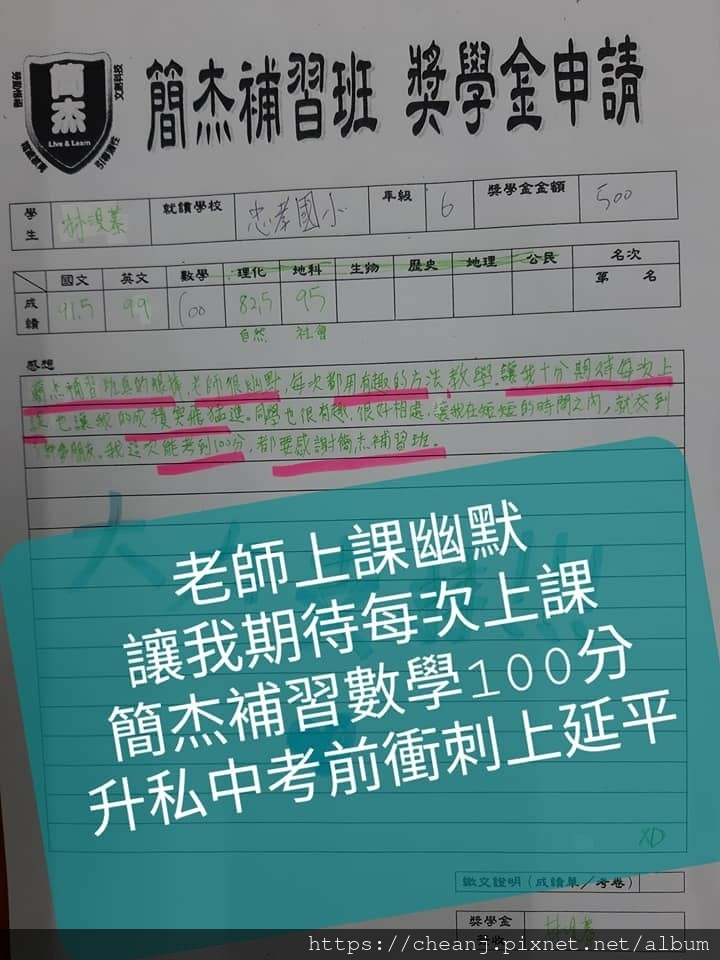 簡杰補習班 獎學金申請
簡杰
Live & Learn
學生
就讀學校 忠孝國小
年級 6
獎學金金額 500
國文 英文 數學 理化 地科 生物 歷史 地理 公民 名次
成績 91.5 99 100 82.5 95 第 名
自然 社會
感想
簡杰補習班真的很棒,老師很幽默,每次都用有趣的方法教學,讓我十分期待每次上
課,也讓我的成績突飛猛進。同學也很有趣,很好相處,讓我在短短的時間之內,就交到
許多朋友。我這次能考到100分,都要感謝簡杰補習班。
老師上課幽默
讓我期待每次上課
簡杰補習數學100分
升私中考前衝刺上延平
XD
繳交證明(成績單/考卷)
獎學金
https://cheanj.pixnet.net/album